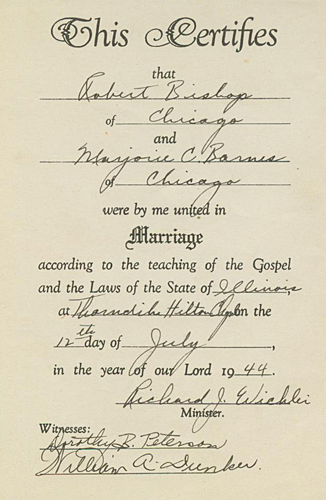 This Certifies
that
Robert Bishop
of Chicago
and
Marjorie C. Barnes
of Chicago
were by me united in
Marriage
according to the teaching of the Gospel
and the Laws of the State of Illinois
at Thorndike Hilton on the
12th day of July,
in the year of our Lord 1944.
Richard J.
Minister.
Witnesses:
Dorothy B. Peterson
William A. Dunker.